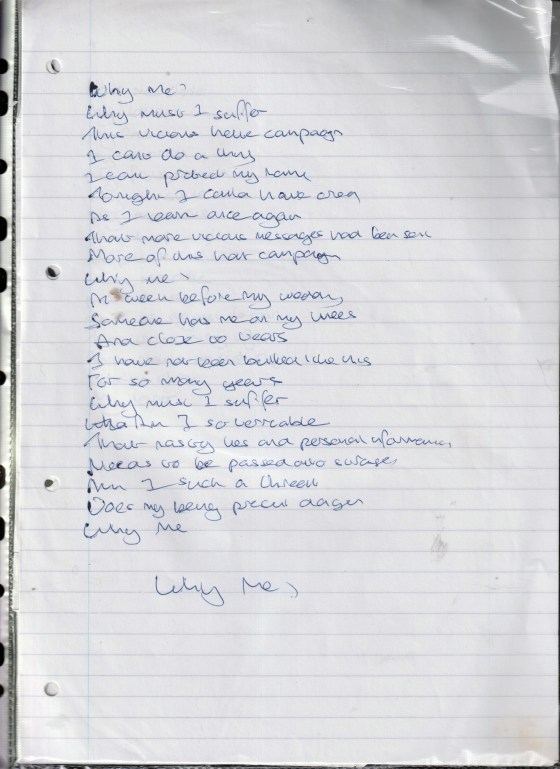 Why me?
Why must I suffer
This vicious hate campaign
I can't do a thing
I can protect my name
Tonight I could have cried
As I learn once again
That more vicious messages had been sent
More of this hate campaign
Why me?
A week before my wedding
Someone has me on my knees
And close to tears
I have not been bullied like this
For so many years
Why must I suffer
Am I so
That nasty lies and personal information
Needs to be passed onto strangers
Am I such a threat
Does my being present danger
Why Me
Why Me?